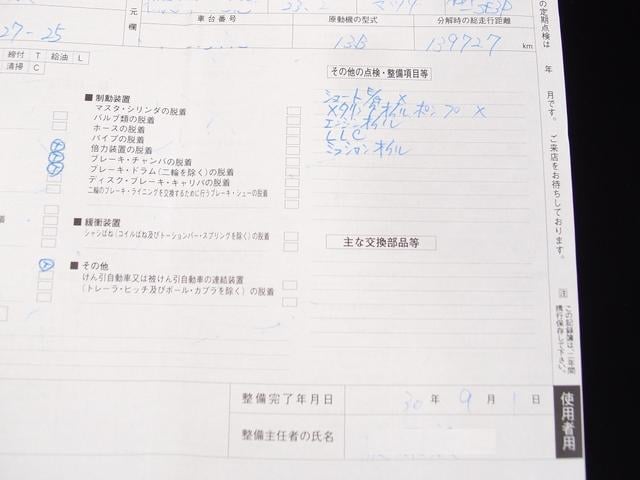 の定期点検は 年 月です。ご来店をお待ちしております。
元
欄
車台番号
原動機の型式
分解時の総走行距離
27-25
13B
139727 km
締付 T 給油 L
清掃 C
その他の点検・整備項目等
■ 制動装置
マスタ・シリンダの脱着
バルブ類の脱着
ホースの脱着
パイプの脱着
倍力装置の脱着
ブレーキ・チャンバの脱着
ブレーキ・ドラム(二輪を除く)の脱着
ディスク・ブレーキ・キャリパの脱着
二輪のブレーキ・ライニングを交換するために行うブレーキ・シューの脱着
T
T
T
メタリングオイルポンプ ×
エンジンオイル
LLC
ミッションオイル
■ 緩衝装置
シャシばね(コイルばね及びトーションバー・スプリングを除く)の脱着
主な交換部品等
T
■ その他
けん引自動車又は被けん引自動車の連結装置
(トレーラ・ヒッチ及びボール・カプラを除く)の脱着
注
この記録簿は、二年間
携行保存して下さい。
整備完了年月日
30 年 9 月 1 日
整備主任者の氏名
使用者用